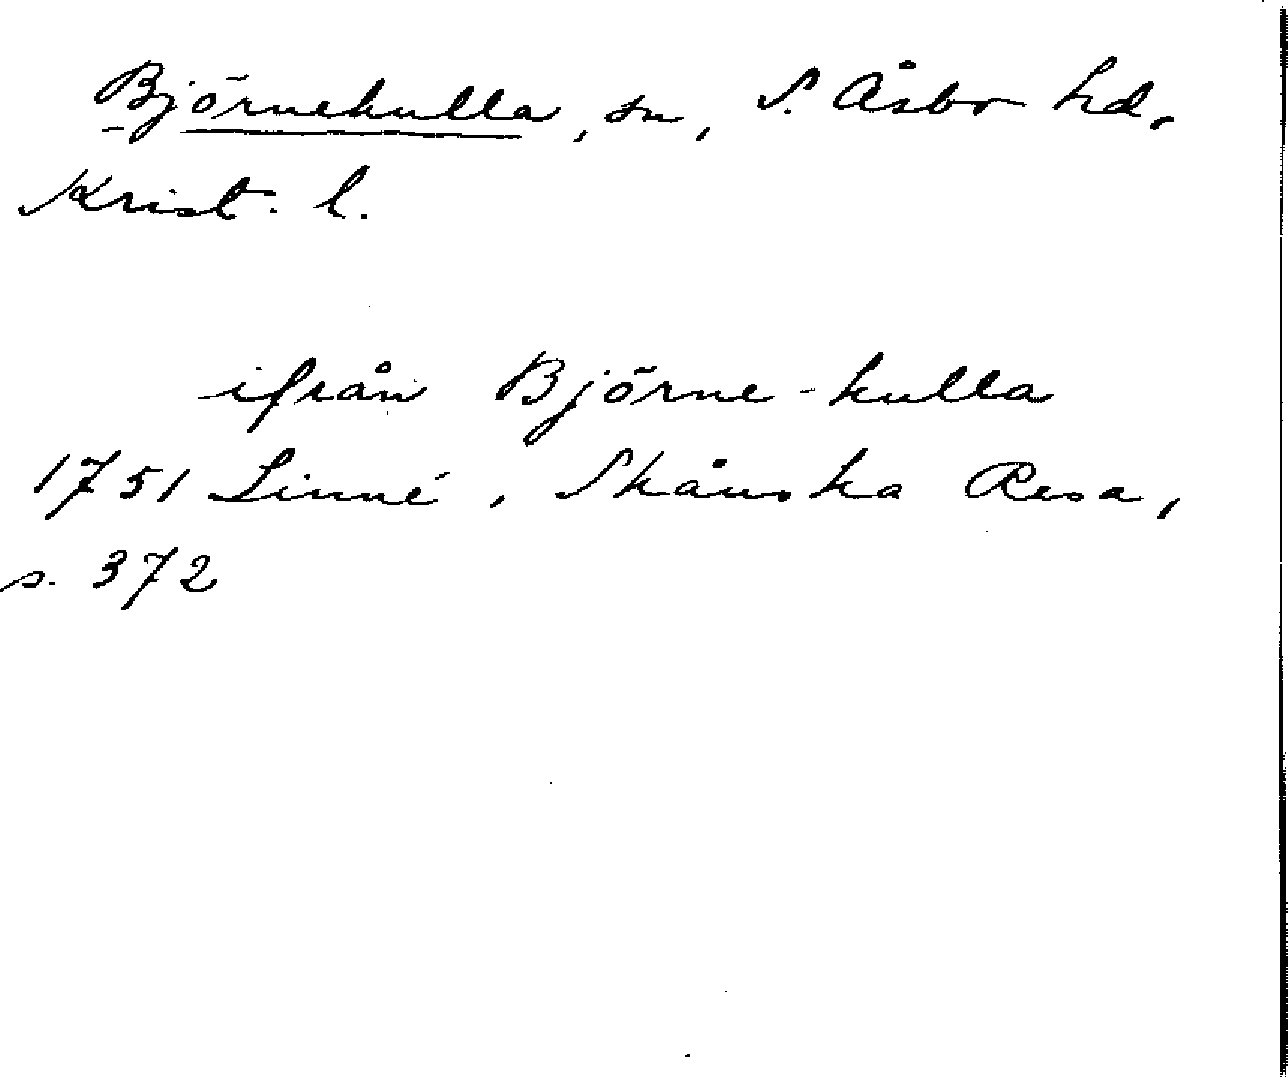 Björnekulla, sn, S. Åsbo hd,
Krist. l.
ifrån Björne-kulla
1751 Linné, Skånska Resa,
s. 372